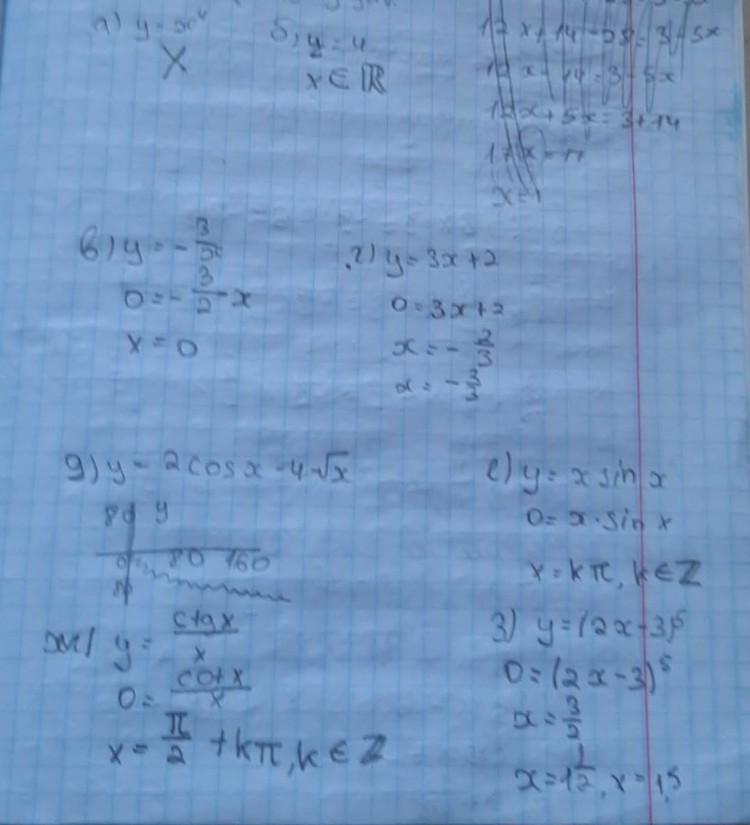 а) y = x⁴
X
б) y = 4
x ∈ ℝ
12x + 14 - 28 = 3 - 5x
12x - 14 = 3 - 5x
12x + 5x = 3 + 14
17x = 17
x = 1
в) y = -3/x
0 = -3/2 x
x = 0
г) y = 3x + 2
0 = 3x + 2
x = -2/3
x = -2/3
g) y = 2cosx - 4√x
80 y
0 80 160
е) y = x sin x
0 = x · sin x
x = kπ, k ∈ Z
ж) y = ctgx/x
0 = cotx/x
x = π/2 + kπ, k ∈ Z
з) y = (2x - 3)⁵
0 = (2x - 3)⁵
x = 3/2
x = 1 1/2, x = 1,5